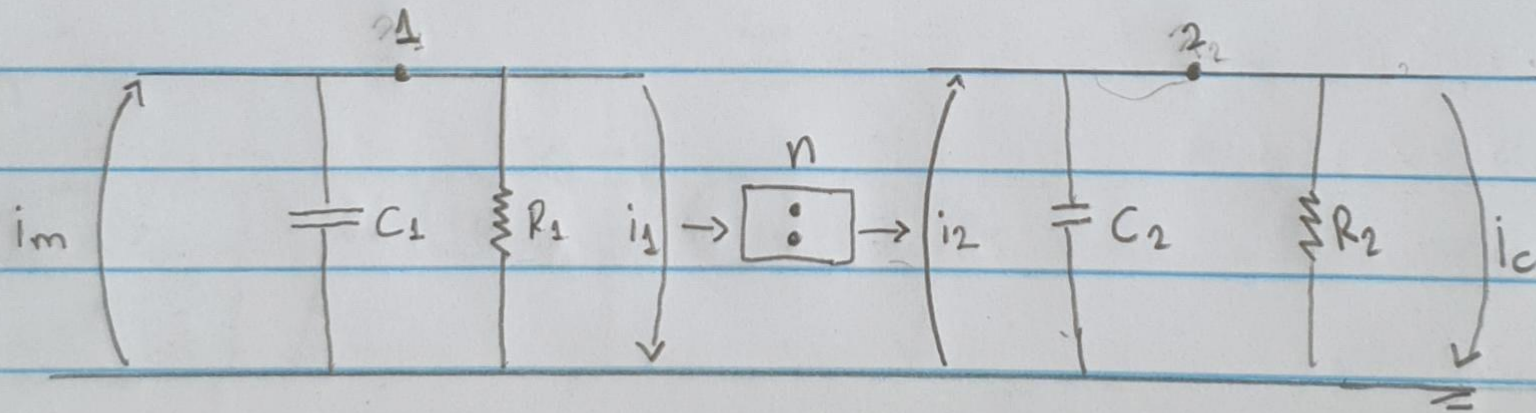 1 2
n
im C1 R1 i1 i2 C2 R2 ic